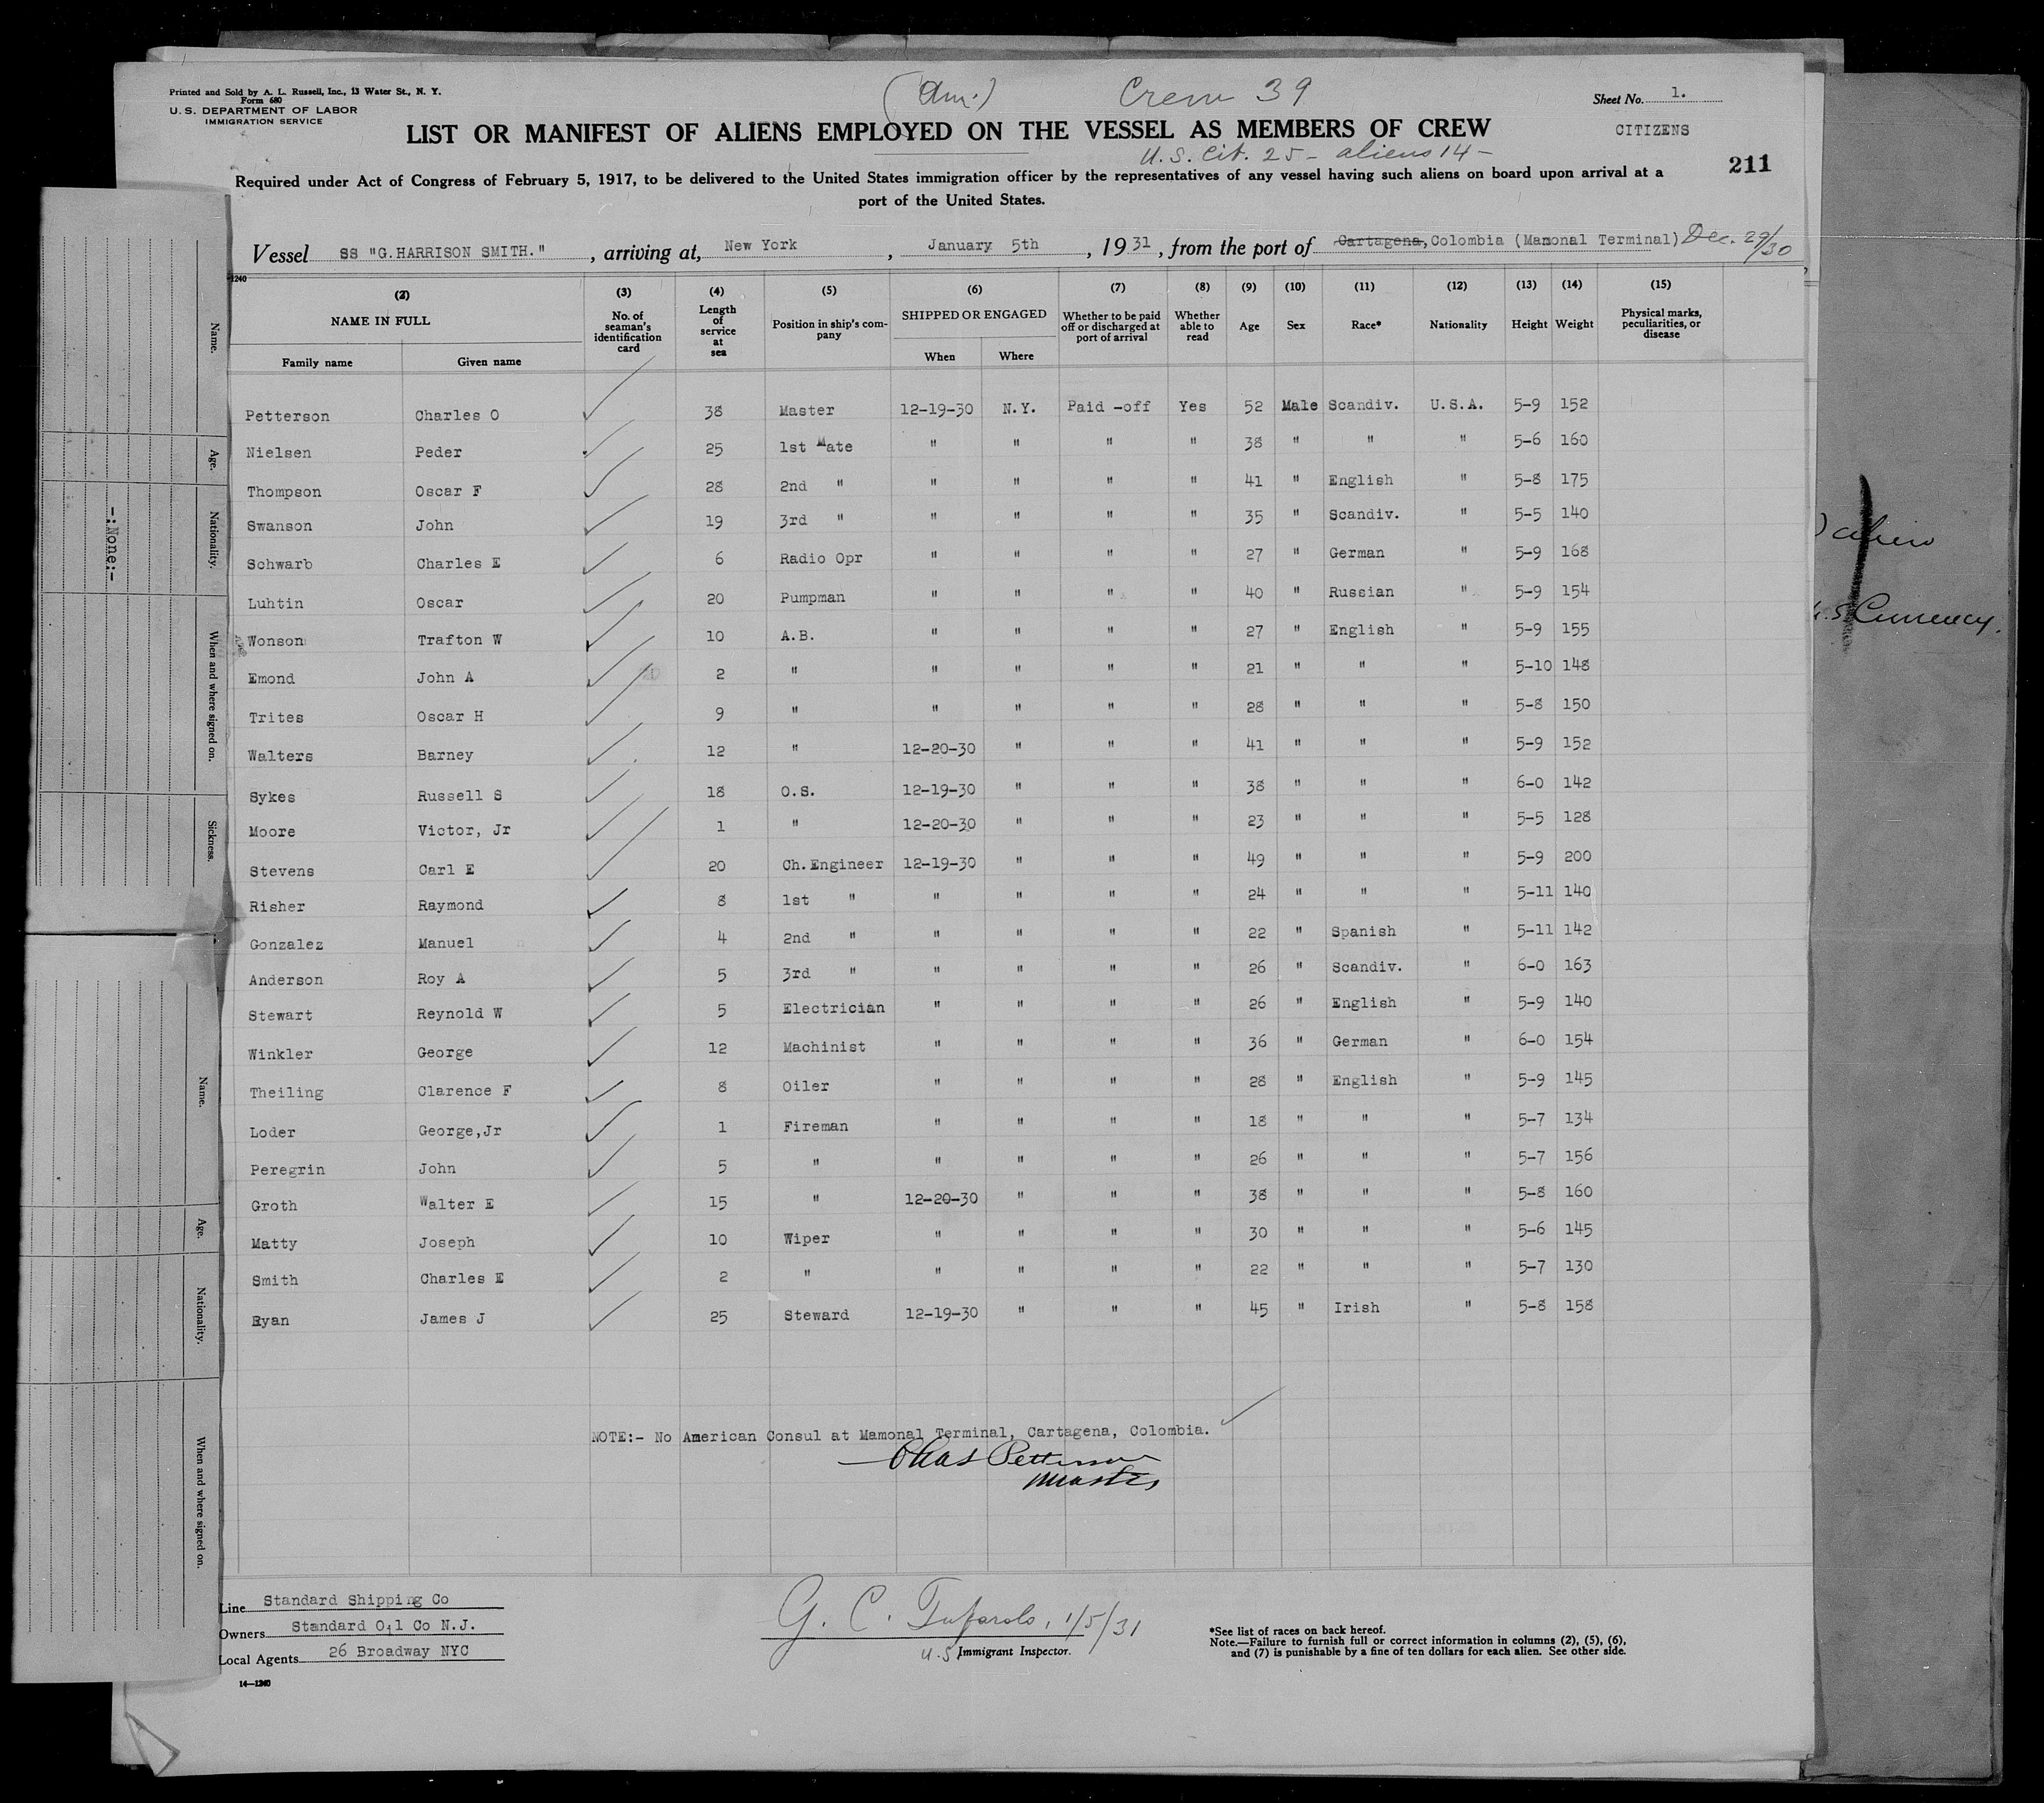 Printed and Sold by A. L. Russell, Inc., 13 Water St., N. Y.
Form 680
U. S. DEPARTMENT OF LABOR
IMMIGRATION SERVICE
(Am.) Crew 39
Sheet No. 1.
CITIZENS
LIST OR MANIFEST OF ALIENS EMPLOYED ON THE VESSEL AS MEMBERS OF CREW
U.S. Cit. 25 - aliens 14 -
211
Required under Act of Congress of February 5, 1917, to be delivered to the United States immigration officer by the representatives of any vessel having such aliens on board upon arrival at a
port of the United States.
Vessel SS "G.HARRISON SMITH." , arriving at, New York , January 5th , 1931, from the port of Cartagena, Colombia (Mamonal Terminal) Dec. 29/30
1240
(2) (3) (4) (5) (6) (7) (8) (9) (10) (11) (12) (13) (14) (15)
NAME IN FULL No. of seaman's identification card Length of service at sea Position in ship's company SHIPPED OR ENGAGED Whether to be paid off or discharged at port of arrival Whether able to read Age Sex Race* Nationality Height Weight Physical marks, peculiarities, or disease
Family name Given name When Where
Petterson Charles O 38 Master 12-19-30 N.Y. Paid -off Yes 52 Male Scandiv. U.S.A. 5-9 152
Nielsen Peder 25 1st Mate " " " " 38 " " " 5-6 160
Thompson Oscar F 28 2nd " " " " " 41 " English " 5-8 175
Swanson John 19 3rd " " " " " 35 " Scandiv. " 5-5 140
Schwarb Charles E 6 Radio Opr " " " " 27 " German " 5-9 168
Luhtin Oscar 20 Pumpman " " " " 40 " Russian " 5-9 154
Wonson Trafton W 10 A.B. " " " " 27 " English " 5-9 155
Emond John A 2 " " " " " 21 " " " 5-10 148
Trites Oscar H 9 " " " " " 28 " " " 5-8 150
Walters Barney 12 " 12-20-30 " " " 41 " " " 5-9 152
Sykes Russell S 18 O.S. 12-19-30 " " " 38 " " " 6-0 142
Moore Victor, Jr 1 " 12-20-30 " " " 23 " " " 5-5 128
Stevens Carl E 20 Ch.Engineer 12-19-30 " " " 49 " " " 5-9 200
Risher Raymond 8 1st " " " " " 24 " " " 5-11 140
Gonzalez Manuel 4 2nd " " " " " 22 " Spanish " 5-11 142
Anderson Roy A 5 3rd " " " " " 26 " Scandiv. " 6-0 163
Stewart Reynold W 5 Electrician " " " " 26 " English " 5-9 140
Winkler George 12 Machinist " " " " 36 " German " 6-0 154
Theiling Clarence F 8 Oiler " " " " 28 " English " 5-9 145
Loder George,Jr 1 Fireman " " " " 18 " " " 5-7 134
Peregrin John 5 " " " " " 26 " " " 5-7 156
Groth Walter E 15 " 12-20-30 " " " 38 " " " 5-8 160
Matty Joseph 10 Wiper " " " " 30 " " " 5-6 145
Smith Charles E 2 " " " " " 22 " " " 5-7 130
Ryan James J 25 Steward 12-19-30 " " " 45 " Irish " 5-8 158
NOTE:- No American Consul at Mamonal Terminal, Cartagena, Colombia.
Chas Petterson
Master
Line Standard Shipping Co
Owners Standard Oil Co N.J.
Local Agents 26 Broadway NYC
14—1240
G. C. Tufarolo, 1/5/31
U.S. Immigrant Inspector.
*See list of races on back hereof.
Note.—Failure to furnish full or correct information in columns (2), (5), (6),
and (7) is punishable by a fine of ten dollars for each alien. See other side.
Name.
Age.
Nationality.
When and where signed on.
Sickness.
-:None:-
Name.
Age.
Nationality.
When and where signed on.
Currency.